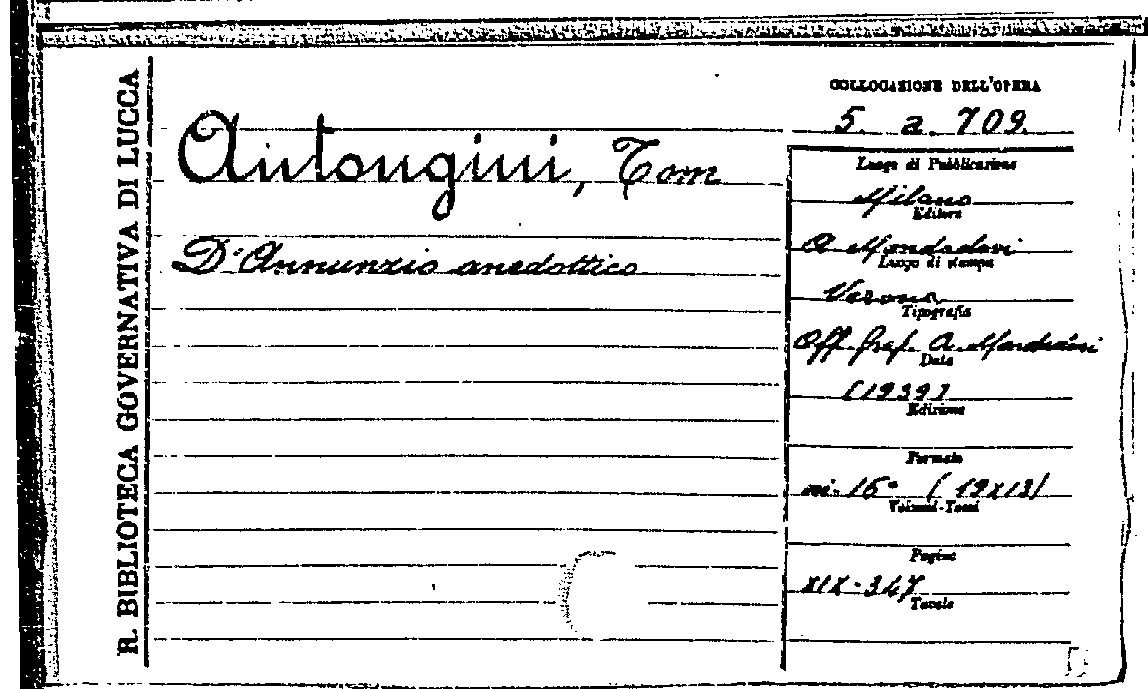 R. BIBLIOTECA GOVERNATIVA DI LUCCA
Antongini, Tom
D'Annunzio anedottico
COLLOCAZIONE DELL'OPERA
5. a. 709.
Luogo di Pubblicazione
Milano
Editore
A. Mondadori
Luogo di stampa
Verona
Tipografia
Off. Graf. A. Mondadori
Data
[1939]
Edizione
Formato
in-16° (19x13)
Volumi-Tomi
Pagine
XIX-347
Tavole